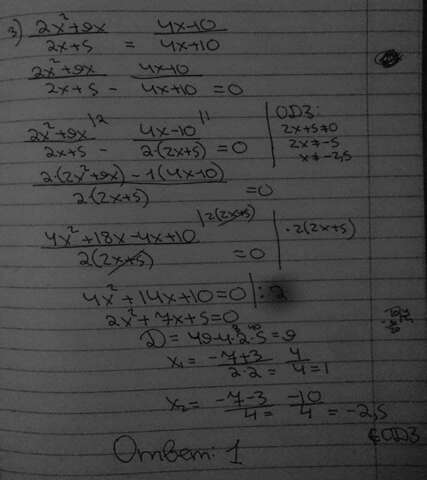 3) (2x²+9x)/(2x+5) = (4x-10)/(4x+10)
(2x²+9x)/(2x+5) - (4x-10)/(4x+10) = 0
(2x²+9x)/(2x+5) |2 - (4x-10)/(2·(2x+5)) |1 = 0
ОДЗ:
2x+5≠0
2x≠-5
x≠-2,5
(2·(2x²+9x)-1(4x-10))/(2(2x+5)) = 0
(4x²+18x-4x+10)/(2(2x+5)) |2(2x+5) = 0 | ·2(2x+5)
4x²+14x+10=0 |:2
2x²+7x+5=0
D=49-4·2·5=9
x₁= (-7+3)/(2·2) = 4/4 = 1
x₂= (-7-3)/4 = -10/4 = -2,5
∉ОДЗ
Ответ: 1